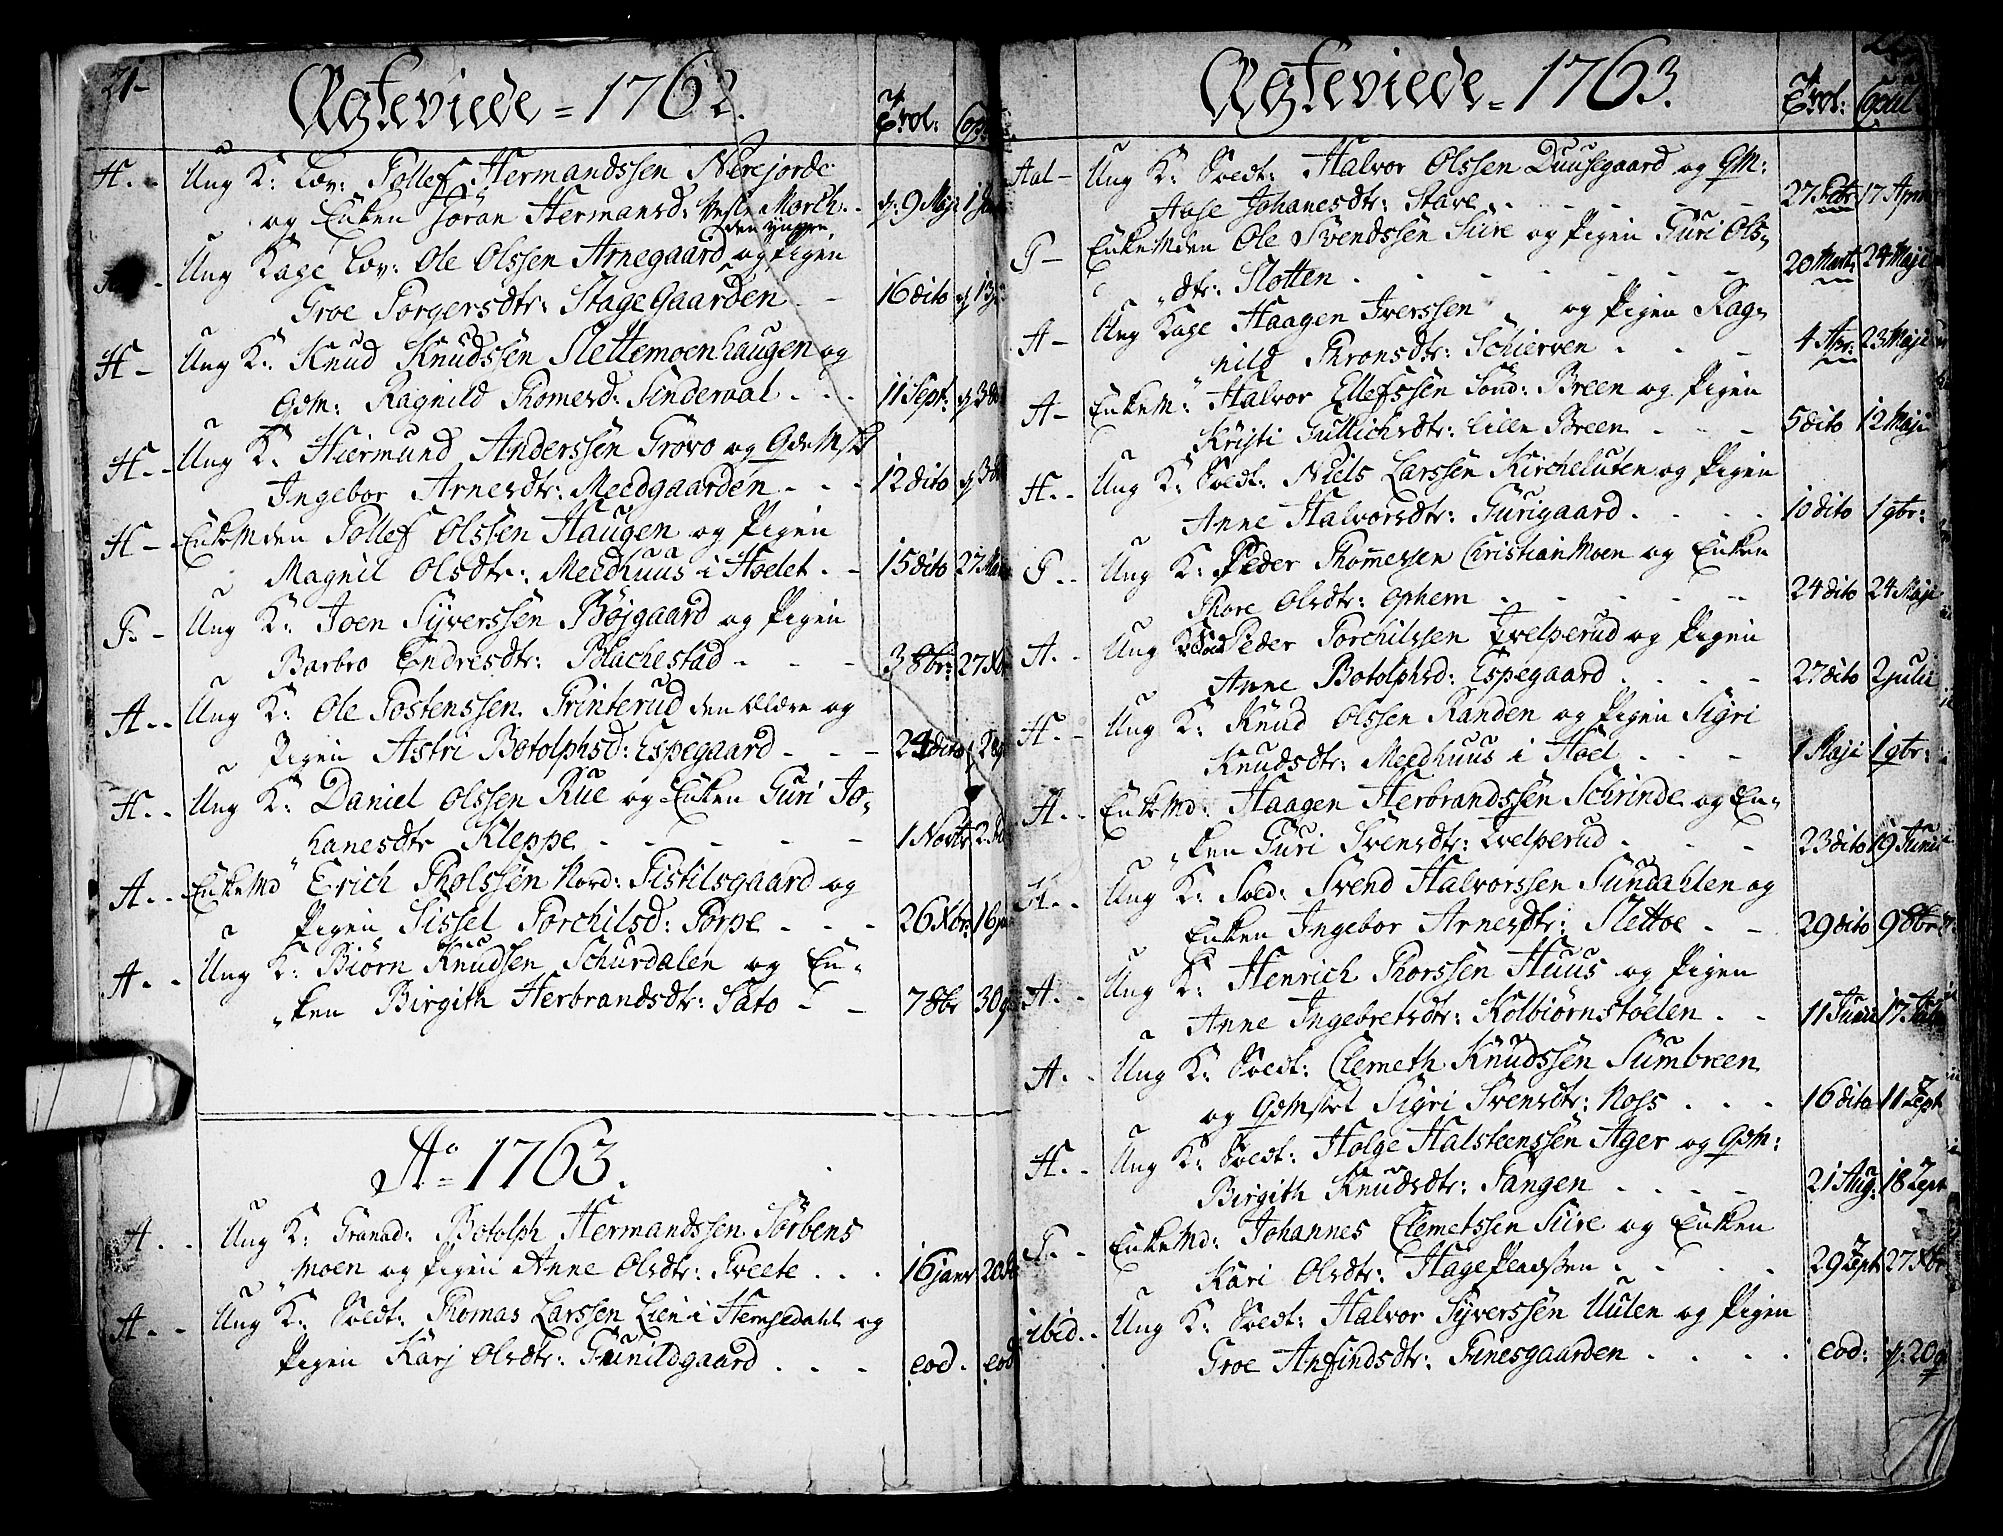 21-
Ægteviede = 1762.
Trol: Cop
H. - Ung K: Lov: Tollef Hermandssen Nerejorde
og Enken Jöran Hermansd: Vestre Morch. - d: 9 Maji 1
den yngre
Ung Kage Lov: Ole Olssen Arnegaard og Pigen
Groe Torgersdtr: StageGaarden - - 16 dito
H - Ung K: Knud Knudssen Slettemoenhaugen og
Gdm: Ragnild Thomesd: Sinderval - - . 11 Sept:
H. - Ung K: Hiermund Anderssen Grovo og GdeMst
Ingebor Arnesdtr: Meedgaarden - - - 12 dito
H - EnkeMden Tollef Olssen Haugen og Pigen
Magnil Olsdtr: Meedhuus i Hoelet. - 15 dito 27
G. - Ung K: Joen Syverssen Böjgaard og Pigen
Barbro Endresdtr: Blachestad - - - 3 8br: 27
A. - Ung K: Ole Tostenssen Trinterud den Ældre og
Pigen Astri Botolphsd: Espegaard - - - 24 dito
H. - Ung K: Daniel Olssen Rue og Enken Guri Jo-
hanesdtr Kleppe - - - - - 1 Novbr
A. - EnkeMd Erich Tholssen Nord: Tistilsgaard og
Pigen Sissel Torchilsd: Torpe - - - 26 Xbr: 16
A. - Ung K: Biörn Knudsen Schurdalen og En-
ken Birgith Herbrandsdtr: Sato - - 7 8br 30
Ao 1763.
A. - Ung K: Granad: Botolph Hermandssen Sörbens
moen og Pigen Anne Olsdtr: Tveete . . . 16 janv 20
A. - Ung K: Soldt: Thomas Larssen Lien i Hemsedahl og
Pigen Karj Olsdtr: Gunildgaard . . - eod. eod
Ægteviede = 1763.
Trol: Copul
Aal - Ung K: Soldt: Halvor Olssen Duusegaard og GM:
Aase Johanesdtr: Stave. - - - - 27 Febr: 17 Apr
G - EnkeMden Ole Svendssen Sire og Pigen Guri Ols-
dtr: Slotten. - - - - - 20 Mart: 24 Maji
A - Ung Kage Haagen Iverssen og Pigen Rag-
nild Thronsdtr: Schierven . . - - 4 Apr: 23 Maji
A - EnkeM: Halvor Ellefssen Sönd: Breen og Pigen
Kristi Gullichsdtr: Lille Breen - - - 5 dito 12 Maji
H. - Ung K: Soldt: Niels Larssen Kircheluten og Pigen
Anne Halvorsdtr: Gurigaard . - - . 10 dito 1 9br:
G. - Ung K: Peder Thommessen Christianmoen og Enken
Thore Olsdtr: Ophem - - - - - 24 dito 24 Maji
A. - Ung K: Sold: Peder Torchilssen Qvelperud og Pigen
Anne Botolphsd: Espegaard . . . - 27 dito 2 julii
H. - Ung K: Knud Olssen Randen og Pigen Sigri
Knudsdtr: Meedhuus i Hoel - - - 1 Maji 1 9br:
A. - EnkeMd: Haagen Herbrandssen Schrinde og En-
ken Guri Svensdtr: Qvelperud . - - 23 dito 19 Junii
H. - Ung K: Sold: Svend Halvorssen Sundahlen og
Enken Ingebor Arnesdtr: Slettoe - - 29 dito 9 8br
A. - Ung K: Henrich Thorssen Huus og Pigen
Anne Ingebretsdtr: Kolbiörnstöelen . - 11 Junii 17
A. - Ung K: Soldt: Clemeth Knudssen Sumbreen
og GdMstet Sigri Svensdtr: Noss . . . 16 dito 11 Sept
H. - Ung K: Soldt: Holge Halsteenssen Ager og GdM:
Birgith Knudsdtr: Tangen - . . - 21 Aug: 18 Sept
G. - EnkeMd: Johannes Clemetssen Sire og Enken
Kari Olsdtr: Hage . . . 29 Sept 27 Xbr
ibid. - Ung K: Soldt: Halvor Syverssen Uulen og Pigen
Groe Anfindsdtr: Finesgaarden . . . . eod: d: 20